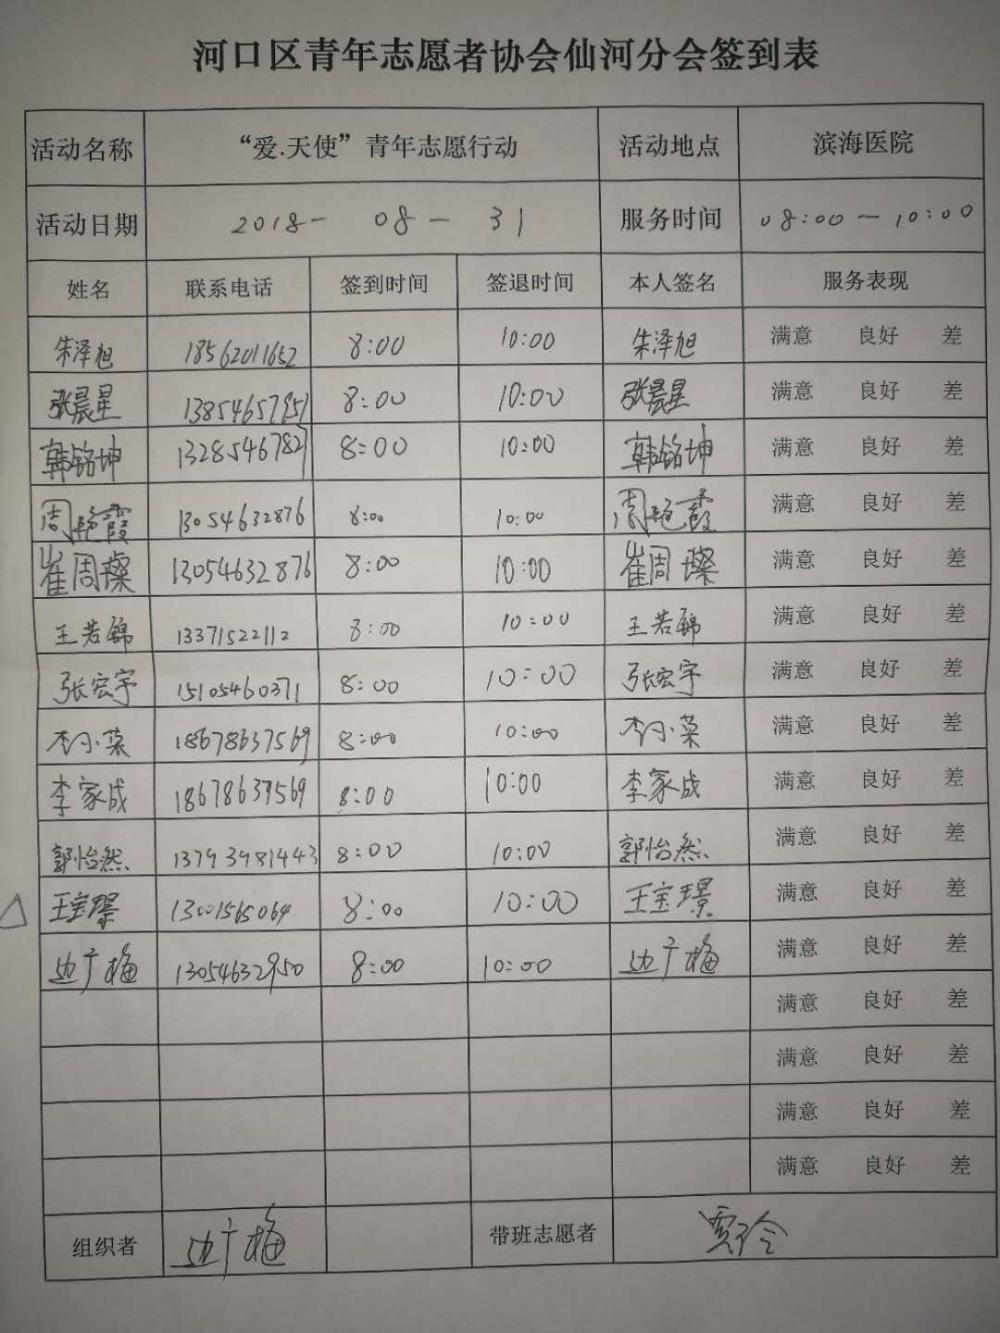 河口区青年志愿者协会仙河分会签到表
活动名称 “爱.天使”青年志愿行动 活动地点 滨海医院
活动日期 2018-08-31 服务时间 08:00-10:00
姓名 联系电话 签到时间 签退时间 本人签名 服务表现
朱泽旭 18562011652 8:00 10:00 朱泽旭 满意 良好 差
张晨星 13854657851 8:00 10:00 张晨星 满意 良好 差
韩铭坤 13285467821 8:00 10:00 韩铭坤 满意 良好 差
周艳霞 13054632876 8:00 10:00 周艳霞 满意 良好 差
崔周璨 13054632876 8:00 10:00 崔周璨 满意 良好 差
王若锦 13371522112 8:00 10:00 王若锦 满意 良好 差
张宏宇 15105460371 8:00 10:00 张宏宇 满意 良好 差
李小菜 18678637569 8:00 10:00 李小菜 满意 良好 差
李家成 18678637569 8:00 10:00 李家成 满意 良好 差
郭怡然 13793981443 8:00 10:00 郭怡然 满意 良好 差
王宝璟 13001565064 8:00 10:00 王宝璟 满意 良好 差
边广梅 13054632950 8:00 10:00 边广梅 满意 良好 差
满意 良好 差
满意 良好 差
满意 良好 差
满意 良好 差
组织者 边广梅 带班志愿者